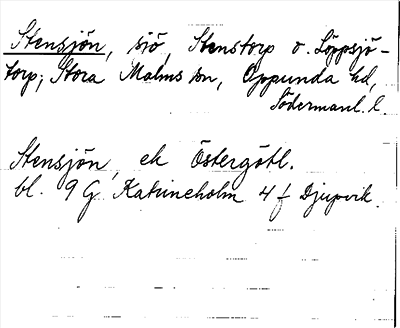 Stensjön, sjö, Stenstorp o. Löppsjö-
torp; Stora Malms sn, Oppunda hd,
Södermanl. l.
Stensjön, ek Östergötl.
bl. 9 G Katrineholm 4 f Djupvik